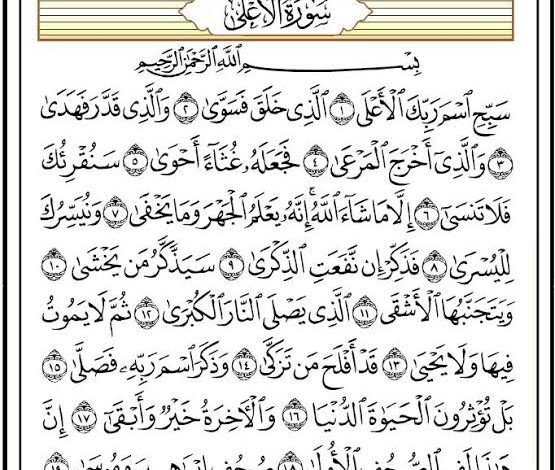 سُورَةُ الْأَعْلَىٰ
بِسْمِ اللَّهِ الرَّحْمَٰنِ الرَّحِيمِ
سَبِّحِ ٱسْمَ رَبِّكَ ٱلْأَعْلَى ١ ٱلَّذِى خَلَقَ فَسَوَّىٰ ٢ وَٱلَّذِى قَدَّرَ فَهَدَىٰ
٣ وَٱلَّذِىٓ أَخْرَجَ ٱلْمَرْعَىٰ ٤ فَجَعَلَهُۥ غُثَآءً أَحْوَىٰ ٥ سَنُقْرِئُكَ
فَلَا تَنسَىٰٓ ٦ إِلَّا مَا شَآءَ ٱللَّهُ ۚ إِنَّهُۥ يَعْلَمُ ٱلْجَهْرَ وَمَا يَخْفَىٰ ٧ وَنُيَسِّرُكَ
لِلْيُسْرَىٰ ٨ فَذَكِّرْ إِن نَّفَعَتِ ٱلذِّكْرَىٰ ٩ سَيَذَّكَّرُ مَن يَخْشَىٰ ١٠
وَيَتَجَنَّبُهَا ٱلْأَشْقَى ١١ ٱلَّذِى يَصْلَى ٱلنَّارَ ٱلْكُبْرَىٰ ١٢ ثُمَّ لَا يَمُوتُ
فِيهَا وَلَا يَحْيَىٰ ١٣ قَدْ أَفْلَحَ مَن تَزَكَّىٰ ١٤ وَذَكَرَ ٱسْمَ رَبِّهِۦ فَصَلَّىٰ ١٥
بَلْ تُؤْثِرُونَ ٱلْحَيَوٰةَ ٱلدُّنْيَا ١٦ وَٱلْءَاخِرَةُ خَيْرٌ وَأَبْقَىٰٓ ١٧ إِنَّ
هَٰذَا لَفِى ٱلصُّحُفِ ٱلْأُولَىٰ ١٨ صُحُفِ إِبْرَٰهِيمَ وَمُوسَىٰ ١٩